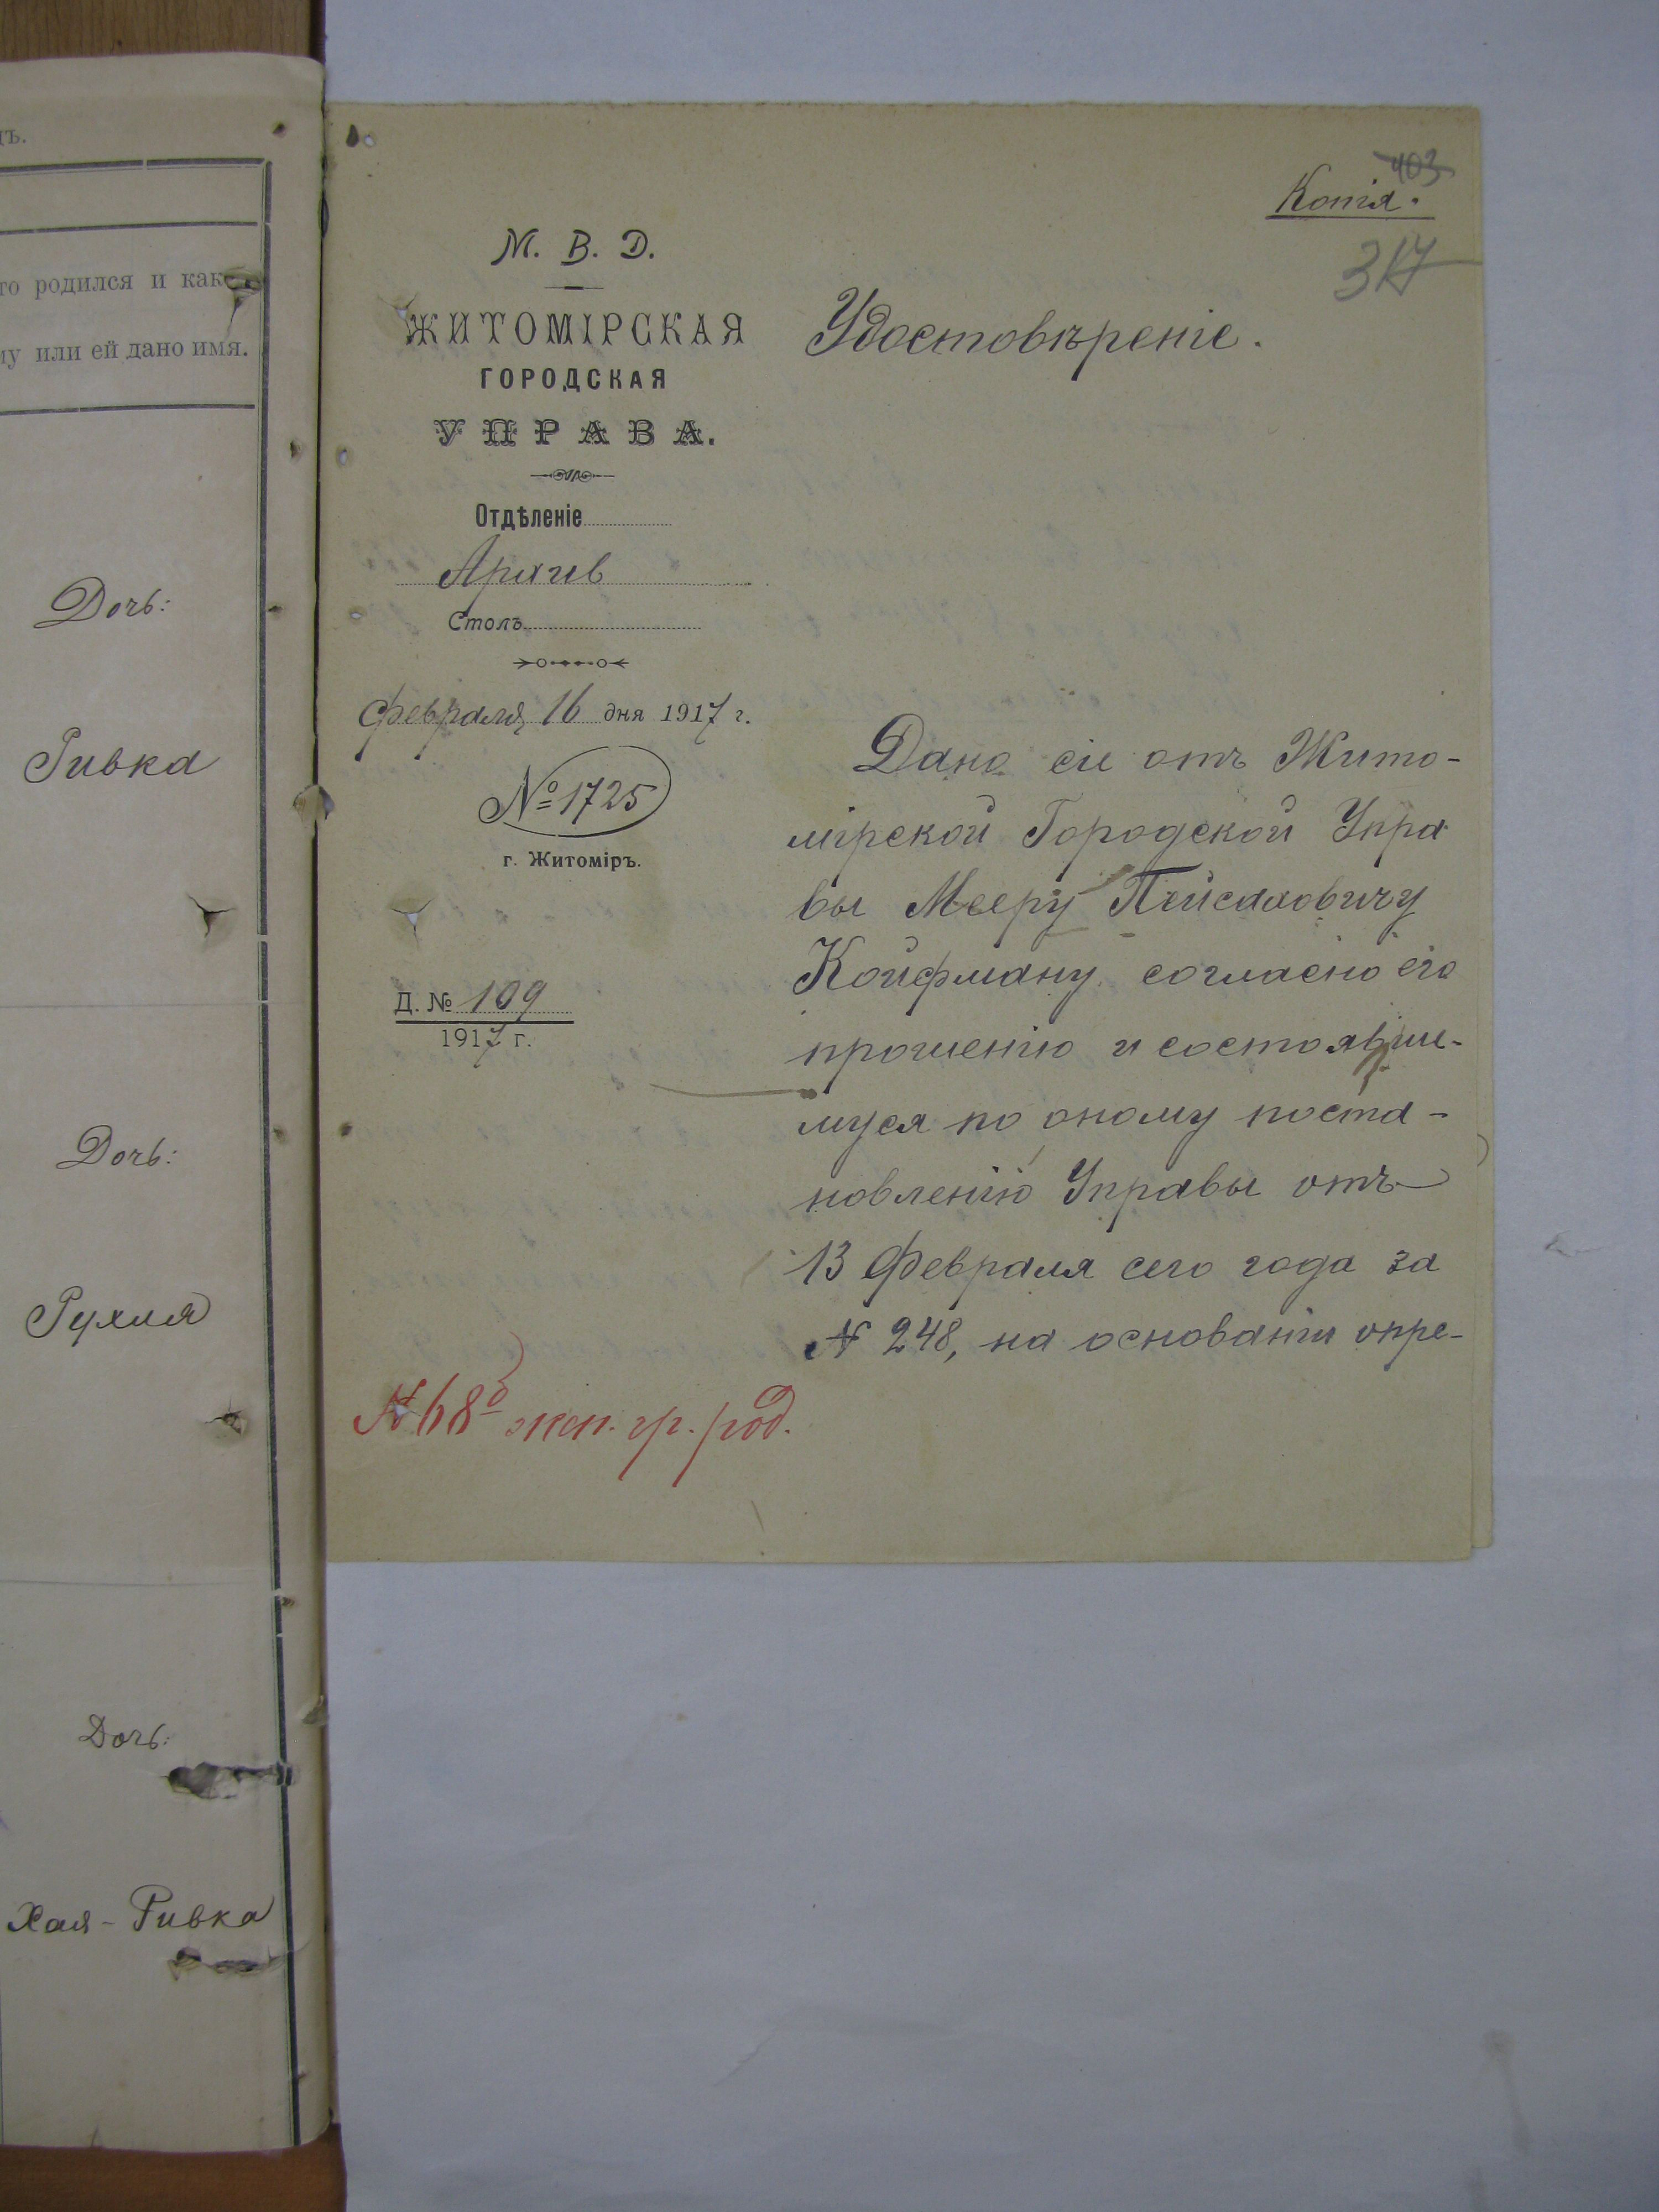 то родился и како
му или ей дано имя.
Дочь:
Ривка
Дочь:
Рухля
Дочь:
Хая-Ривка
403
Копія.
317
М. В. Д.
ЖИТОМІРСКАЯ
ГОРОДСКАЯ
УПРАВА.
Отдѣленіе
Архив
Столъ
Февраля 16 дня 1917 г.
№ 1725
г. Житоміръ.
Д. № 109
1917 г.
Удостовѣреніе.
Дано сіе отъ Жито-
мірской Городской Упра
вы Мееру Пейсаховичу
Койфману согласно его
прошенію и состоявше-
муся по оному поста-
новленію Управы отъ
13 Февраля сего года за
№ 248, на основаніи опре-
№ 68 гр. род.